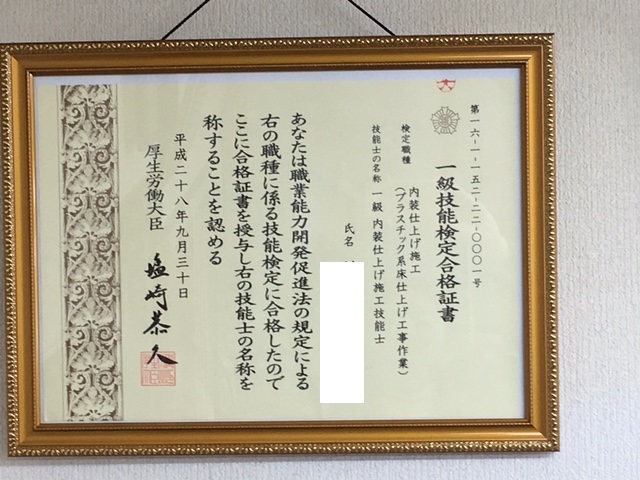 第一六-一-一五二-二二-〇〇〇一号
一級技能検定合格証書
検定職種 内装仕上げ施工
(プラスチック系床仕上げ工事作業)
技能士の名称 一級 内装仕上げ施工技能士
氏名
あなたは職業能力開発促進法の規定による
右の職種に係る技能検定に合格したので
ここに合格証書を授与し右の技能士の名称を
称することを認める
平成二十八年九月三十日
厚生労働大臣 塩崎恭久